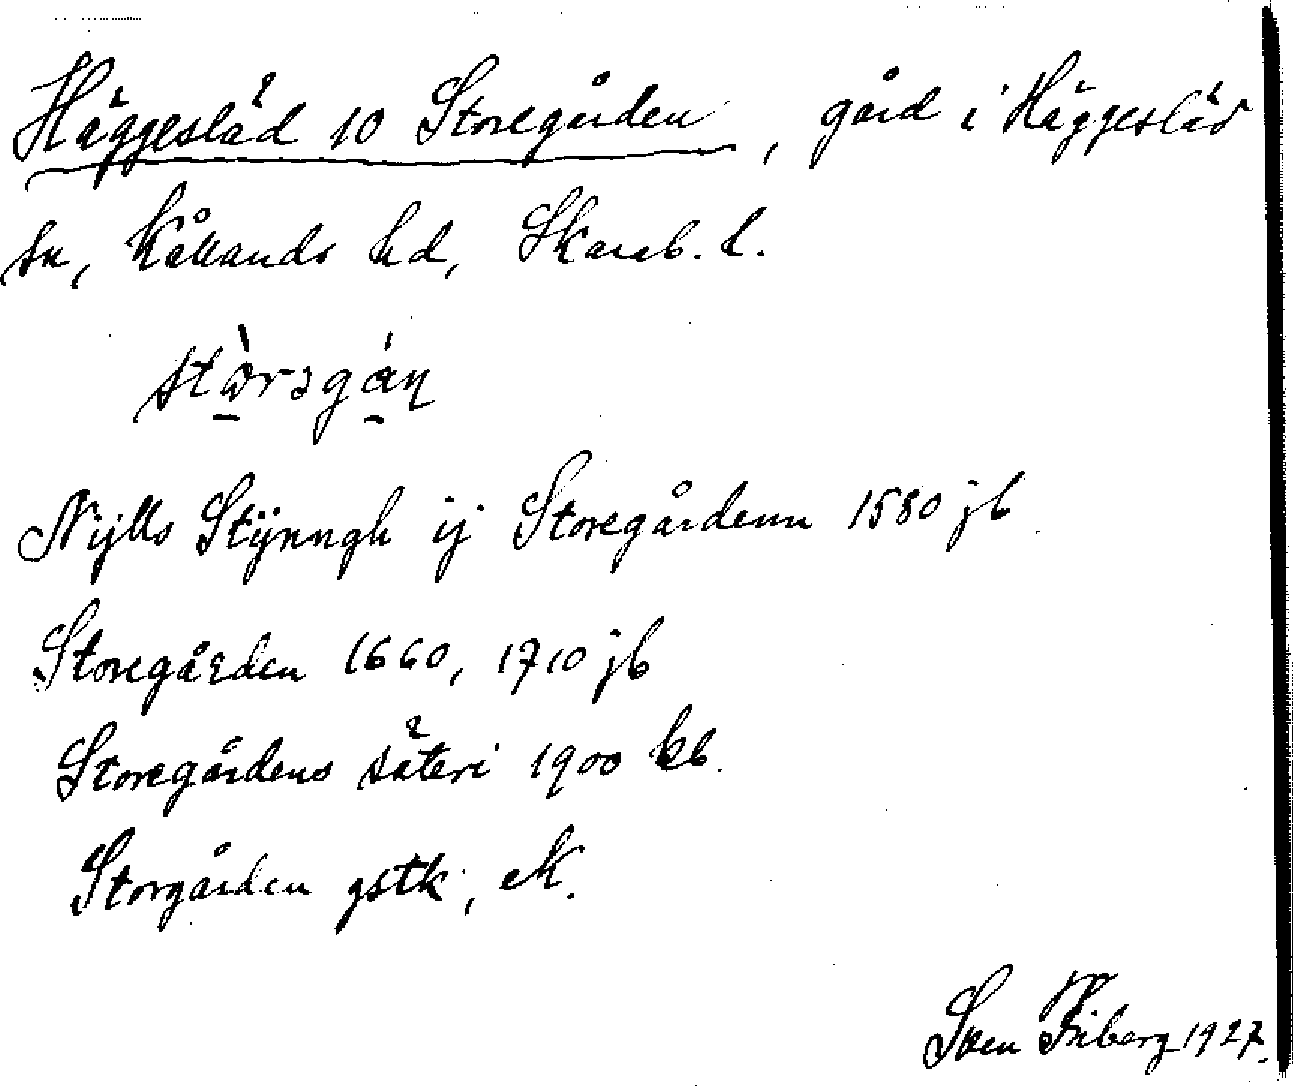 Häggesläd 10 Storegården, gård i Häggesläd
sn, Kållands hd, Skarab. l.
Nijlls Stÿnngh ij Storegårdenn 1580 jb
Storegården 1660, 1710 jb
Storegårdens säteri 1900 kb.
Storgården gstk, eK.
Sven Friberg 1927.